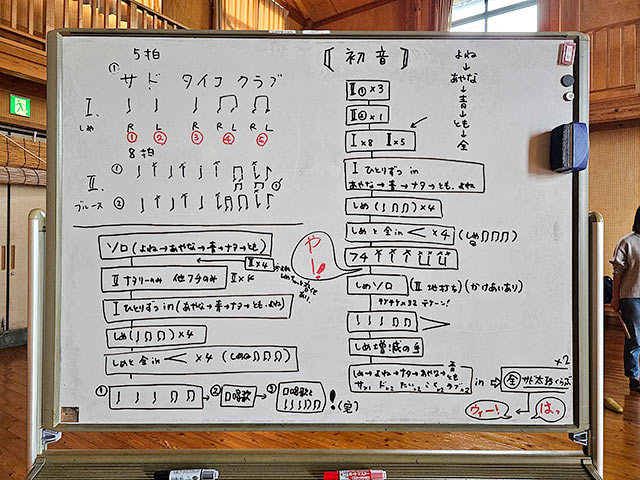 5拍
① サド タイコ クラブ
I.
しめ R L R R L R L
① ② ③ ④ ⑤
8拍
① 
II.
ブルース ②
ソロ(よね→あやな→青→ナタ→とも)
II×4
II ナタリーのみ 他フチのみ II×4
I ひとりずつin(あやな→青→ナタ→とも、よね)
しめ( )×4
しめと全in < ×4 (しめ )
① → ② 口唱歌 → ③ 口唱歌と ! (完)
〚初音〛
II①×3
II②×1
I×8 II×5
I ひとりずつ in
あやな→青→ナタ→とも、よね
しめ( )×4
しめと全in < ×4 (しめ )
フチ
やー!!
しめソロ (II 地打ち) (かけあいあり)
しめ増減の手
しめ→よね→ナタ→あやな→青とも
in → 全 サド太鼓くらぶ ×2
はっ
ウィー!
よね
↓
あやな
↓
青
↓
とも
↓
全